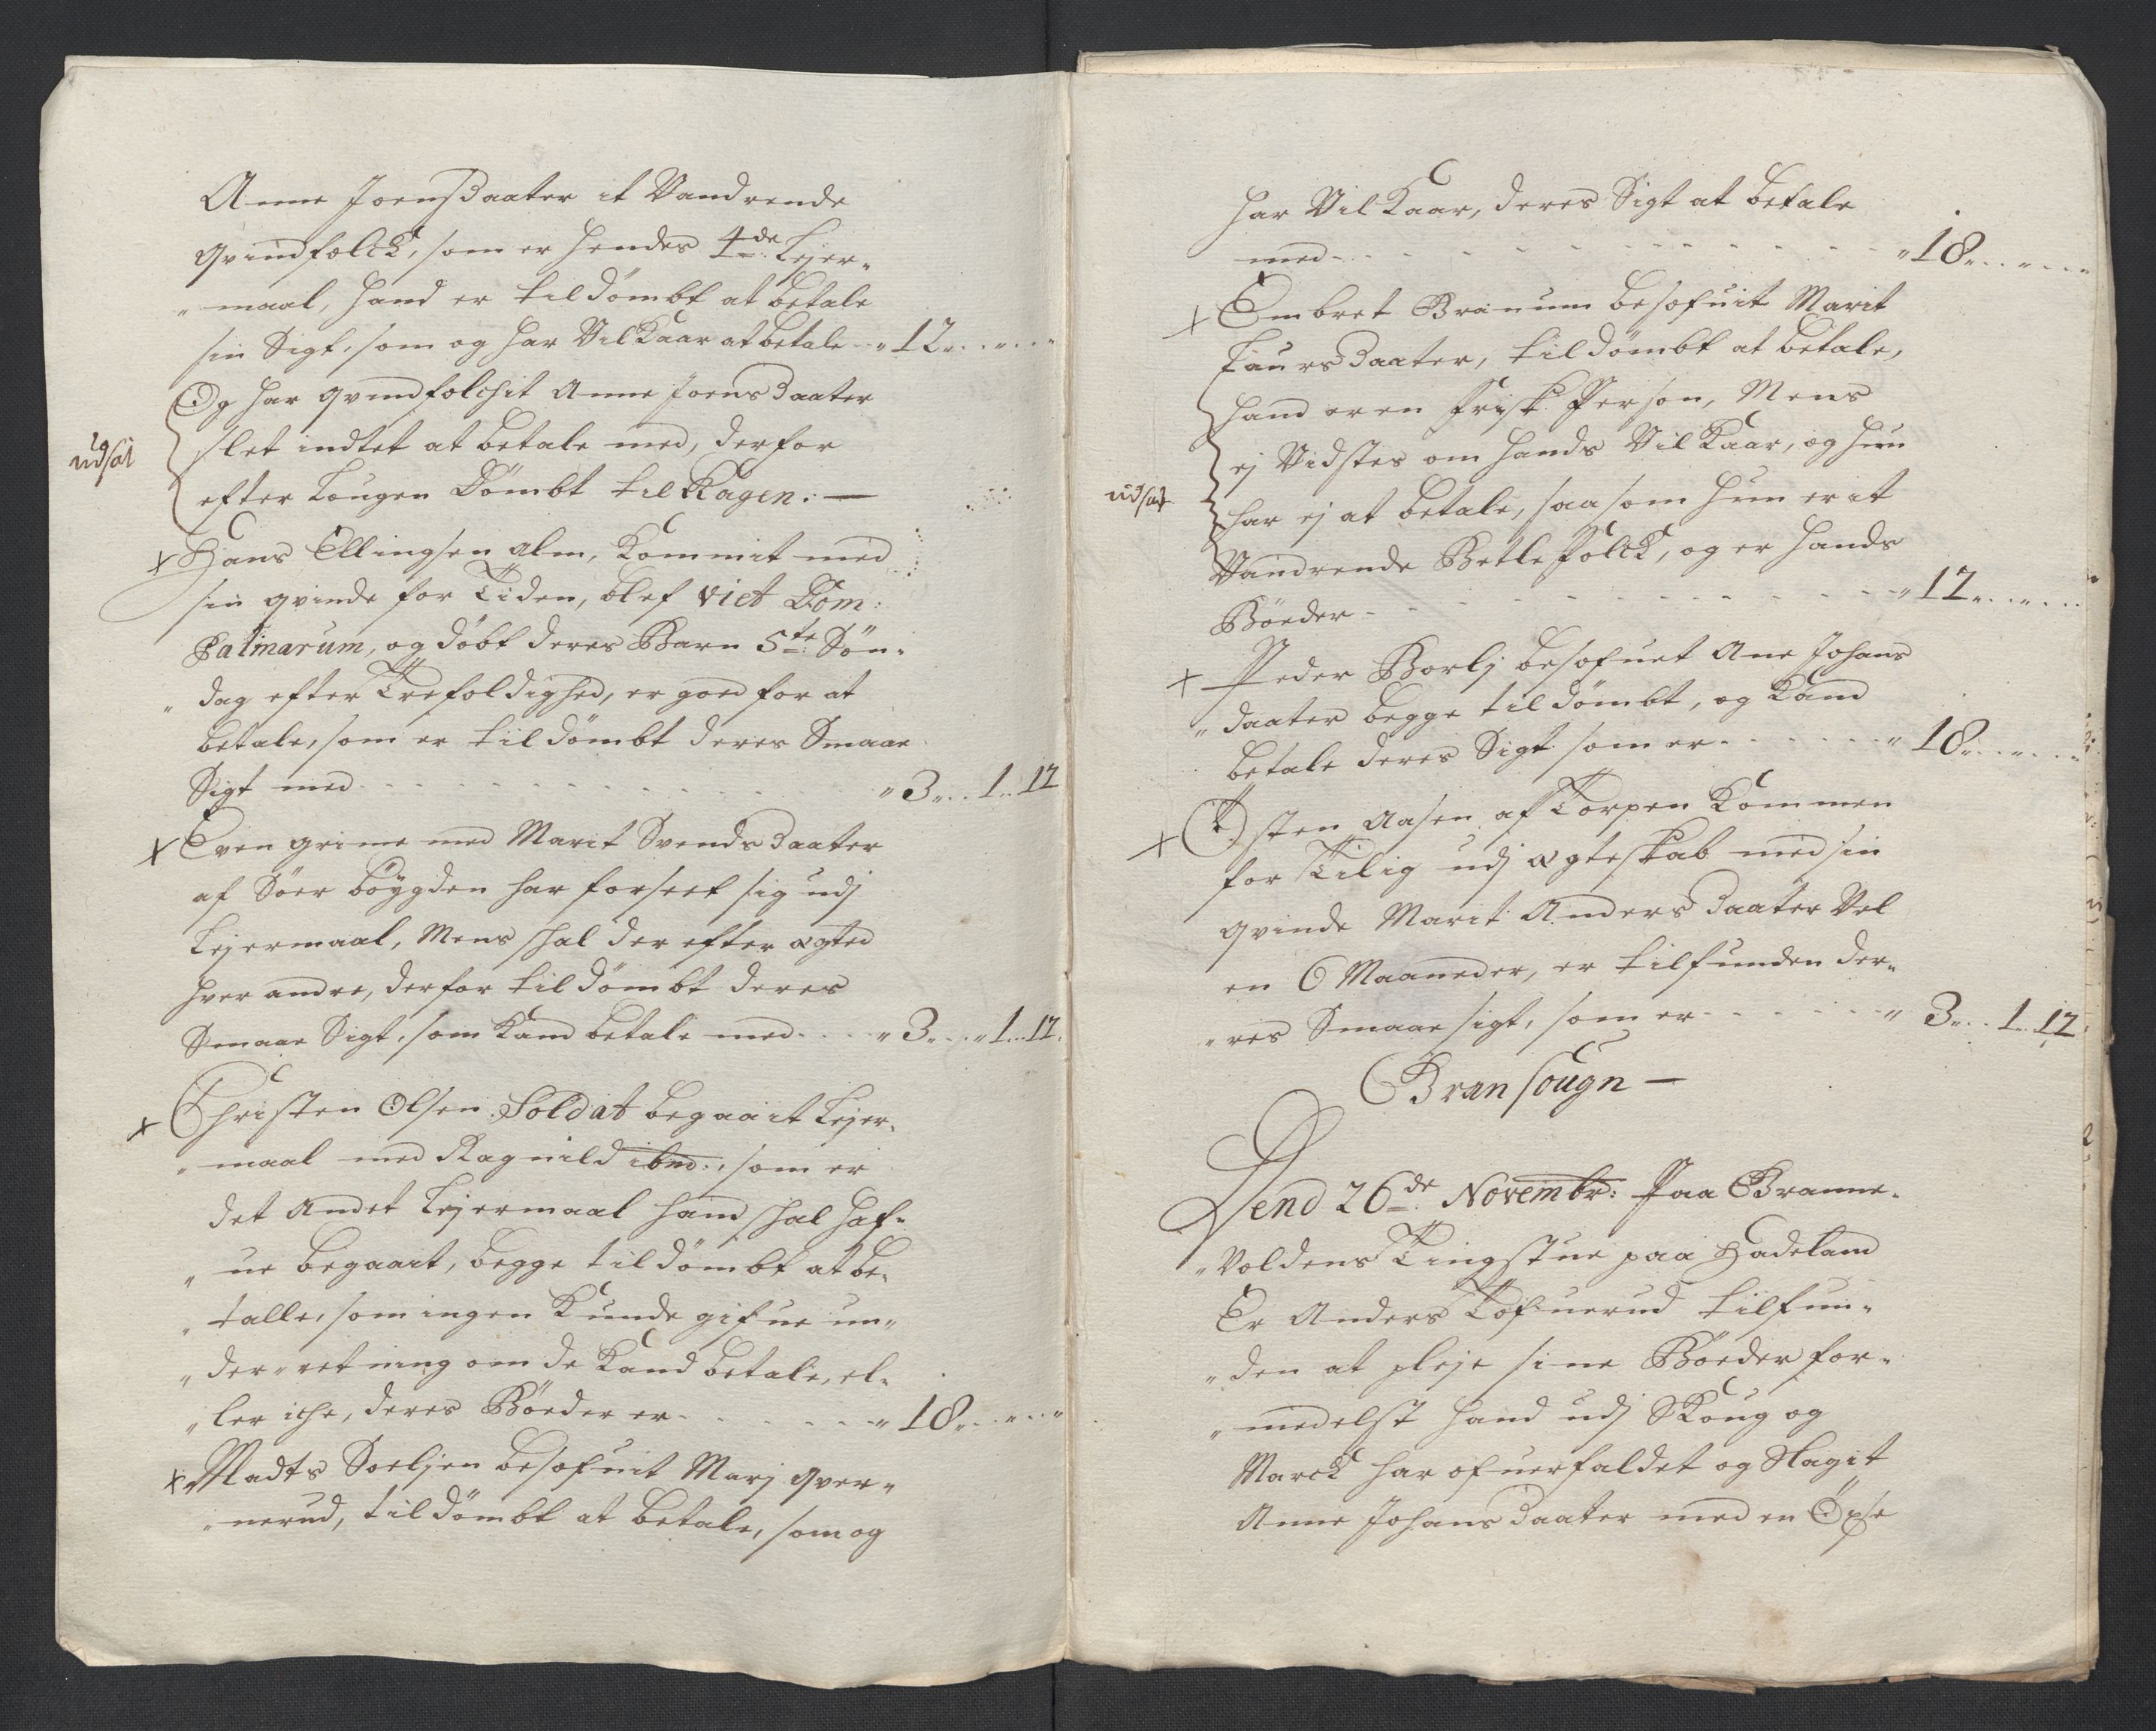 Anne Joensdaater it Vandrende
qvindfolck, som er hendes 4de: Lejer-
"maal, hand er tildömbt at betale
sin Sigt, som og har Vilkaar at betale - " 12 " . . " . . "
Og har qvindfolchit Anne Joensdaater
slet indtet at betale med, derfor
udsat
efter Lougen Dömbt til Kagen. —
+ Hans Ellingsen Alm, Kommit med
sin qvinde for Tiden, blef Viet Dom:
Palmarum, og döbt deres Barn 5te: Sön-
"dag efter Trefoldighed, er goed for at
betale, som er tildömbt deres Smaae
Sigt med - - - - - - - " 3 " . . 1 . . 12
+ Even Grime med Marit Svendsdaater
af Söer böygden har forseet sig udj
Lejermaal, Mens schal derefter ægted
hverandre, derfor tildömbt deres
Smaae Sigt, som Kand betale med - - " 3 . . " 1 . . 12.
+ Christen Olsen Soldat begaait Lejer-
"maal med Ragnild ibm:, som er
det Andet Lejermaal hand schal haf-
"ue begaait, begge tildömbt at be-
"talle, som ingen Kunde gifue un-
"der-retning om de Kand betale, el-
"ler iche, deres Böeder er - - - - " 18 " . . " . . "
+ Madts Soeljen besofuit Marj Qver-
"nerud, tildömbt at betale, som og
har Vilkaar, deres Sigt at betale
med - - - - - - - - - " 18 " . . " . . "
+ Embret Branum besofuit Marit
Laursdaater, tildömbt at betale,
hand er en frisk Person, Mens
ej Vidstes om hands Vilkaar, og hun
udsat
har ej at betale, saasom hun er it
Vandrende Betlefolck, og er hands
Böeder - - - - - - - - " 12 " . . " . .
+ Peder Borlj besofuet Ane Johans
"daater begge tildömbt, og Kand
betale deres Sigt som er - - - - " 18 " . . " . . "
+ Östen Aasen af Torpen Kommen
for Tilig udj ægteskab med sin
qvinde Marit Andersdaater Vel
en 6 Maaneder, er tilfunden der-
"res Smaae sigt, som er - - - - " 3 " . . 1 . . 12
Bran sougn —
Dend 26de: Novembr: Paa Branne-
"Voldens Tingstue paa Hadeland
Er Anders Tofuerud tilfun-
"den at pleje sine Böeder for-
"medelst hand udj Skoug og
Marck har ofuerfaldet og Slagit
Anne Johansdaater med en Öxse